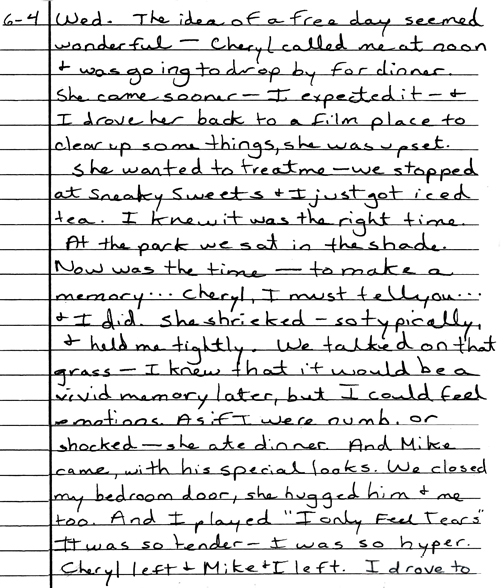 6-4 Wed. The idea of a free day seemed
wonderful — Cheryl called me at noon
+ was going to drop by for dinner.
She came sooner — I expected it — +
I drove her back to a film place to
clear up some things, she was upset.
She wanted to treat me — we stopped
at Sneaky Sweets + I just got iced
tea. I knew it was the right time.
At the park we sat in the shade.
Now was the time — to make a
memory... Cheryl, I must tell you...
+ I did. She shrieked — so typically,
+ held me tightly. We talked on that
grass — I knew that it would be a
vivid memory later, but I could feel
emotions. As if I were numb, or
shocked — she ate dinner. And Mike
came, with his special looks. We closed
my bedroom door, she hugged him + me
too. And I played "I only Feel Tears"
It was so tender — I was so hyper.
Cheryl left + Mike + I left. I drove to